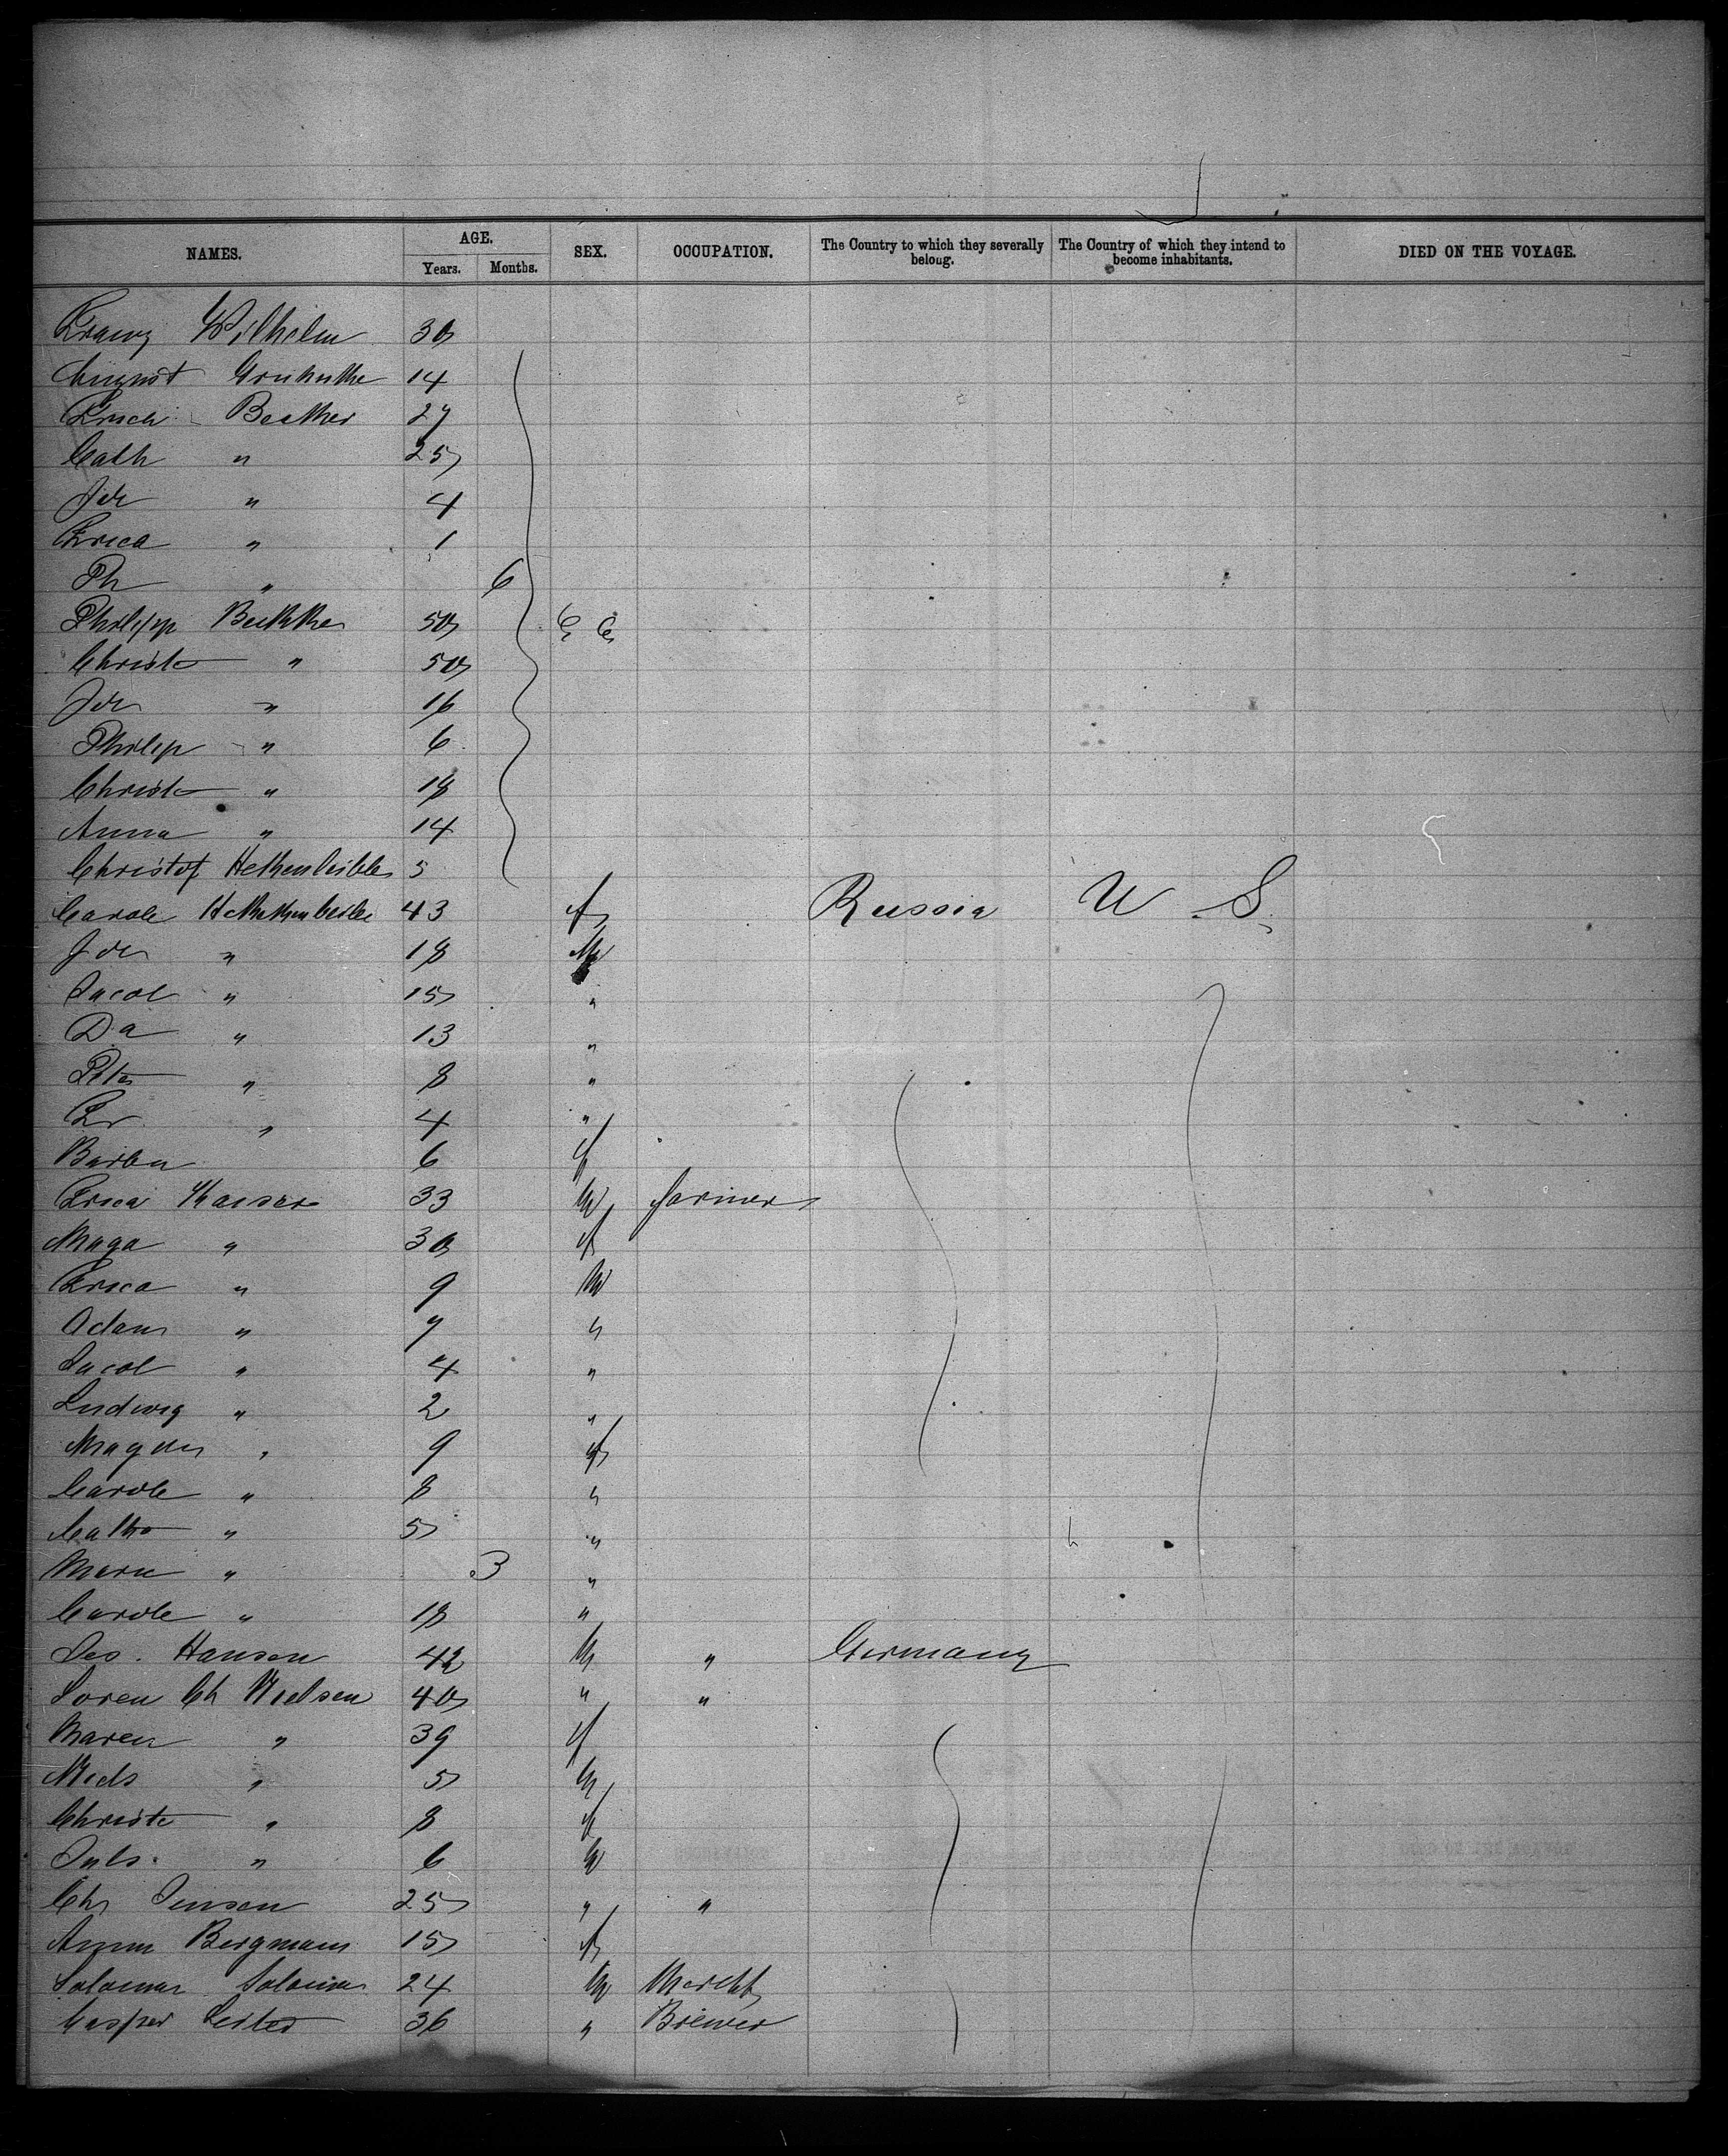 NAMES. AGE. SEX. OCCUPATION. The Country to which they severally belong. The Country of which they intend to become inhabitants. DIED ON THE VOYAGE.
Years. Months.
Franz Wilhelm 30
August 14
Becker 27
Cath " 25
Joh " 4
" 1
Ph " 6
Philipp 50
Christe " 50
Joh " 16
Philip " 6
Christe " 18
Anna " 14
Christof 5
Carole 43 f Russia U. S.
Joh " 18 M
Jacob " 15 "
Da " 13 "
Peter " 8 "
Fr " 4 "
Barba 6 f
Kaiser 33 M farmer
Maga " 30 f
" 9 M
Adam " 7 "
Jacob " 4 "
Ludwig " 2 "
Magda " 9 f
Carole " 8 "
Catha " 5 "
Marie " 3 "
Carole " 18 "
Jes. Hansen 42 M " Germany
Soren Ch Nielsen 40 " "
Maren " 39 f
Niels " 5 M
Christe " 8 f
Juls. " 6 M
Chr Jensen 25 " "
Anna Bergmann 15 f
Salomon 24 M Mercht
Casper 36 " Brewer